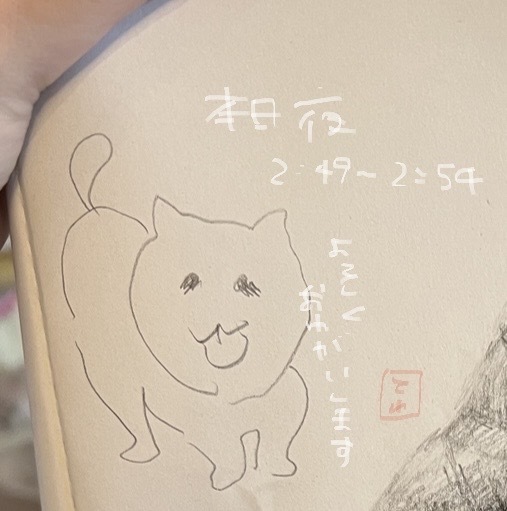 本日夜
2:49~2:54
よろしく
おねがいします